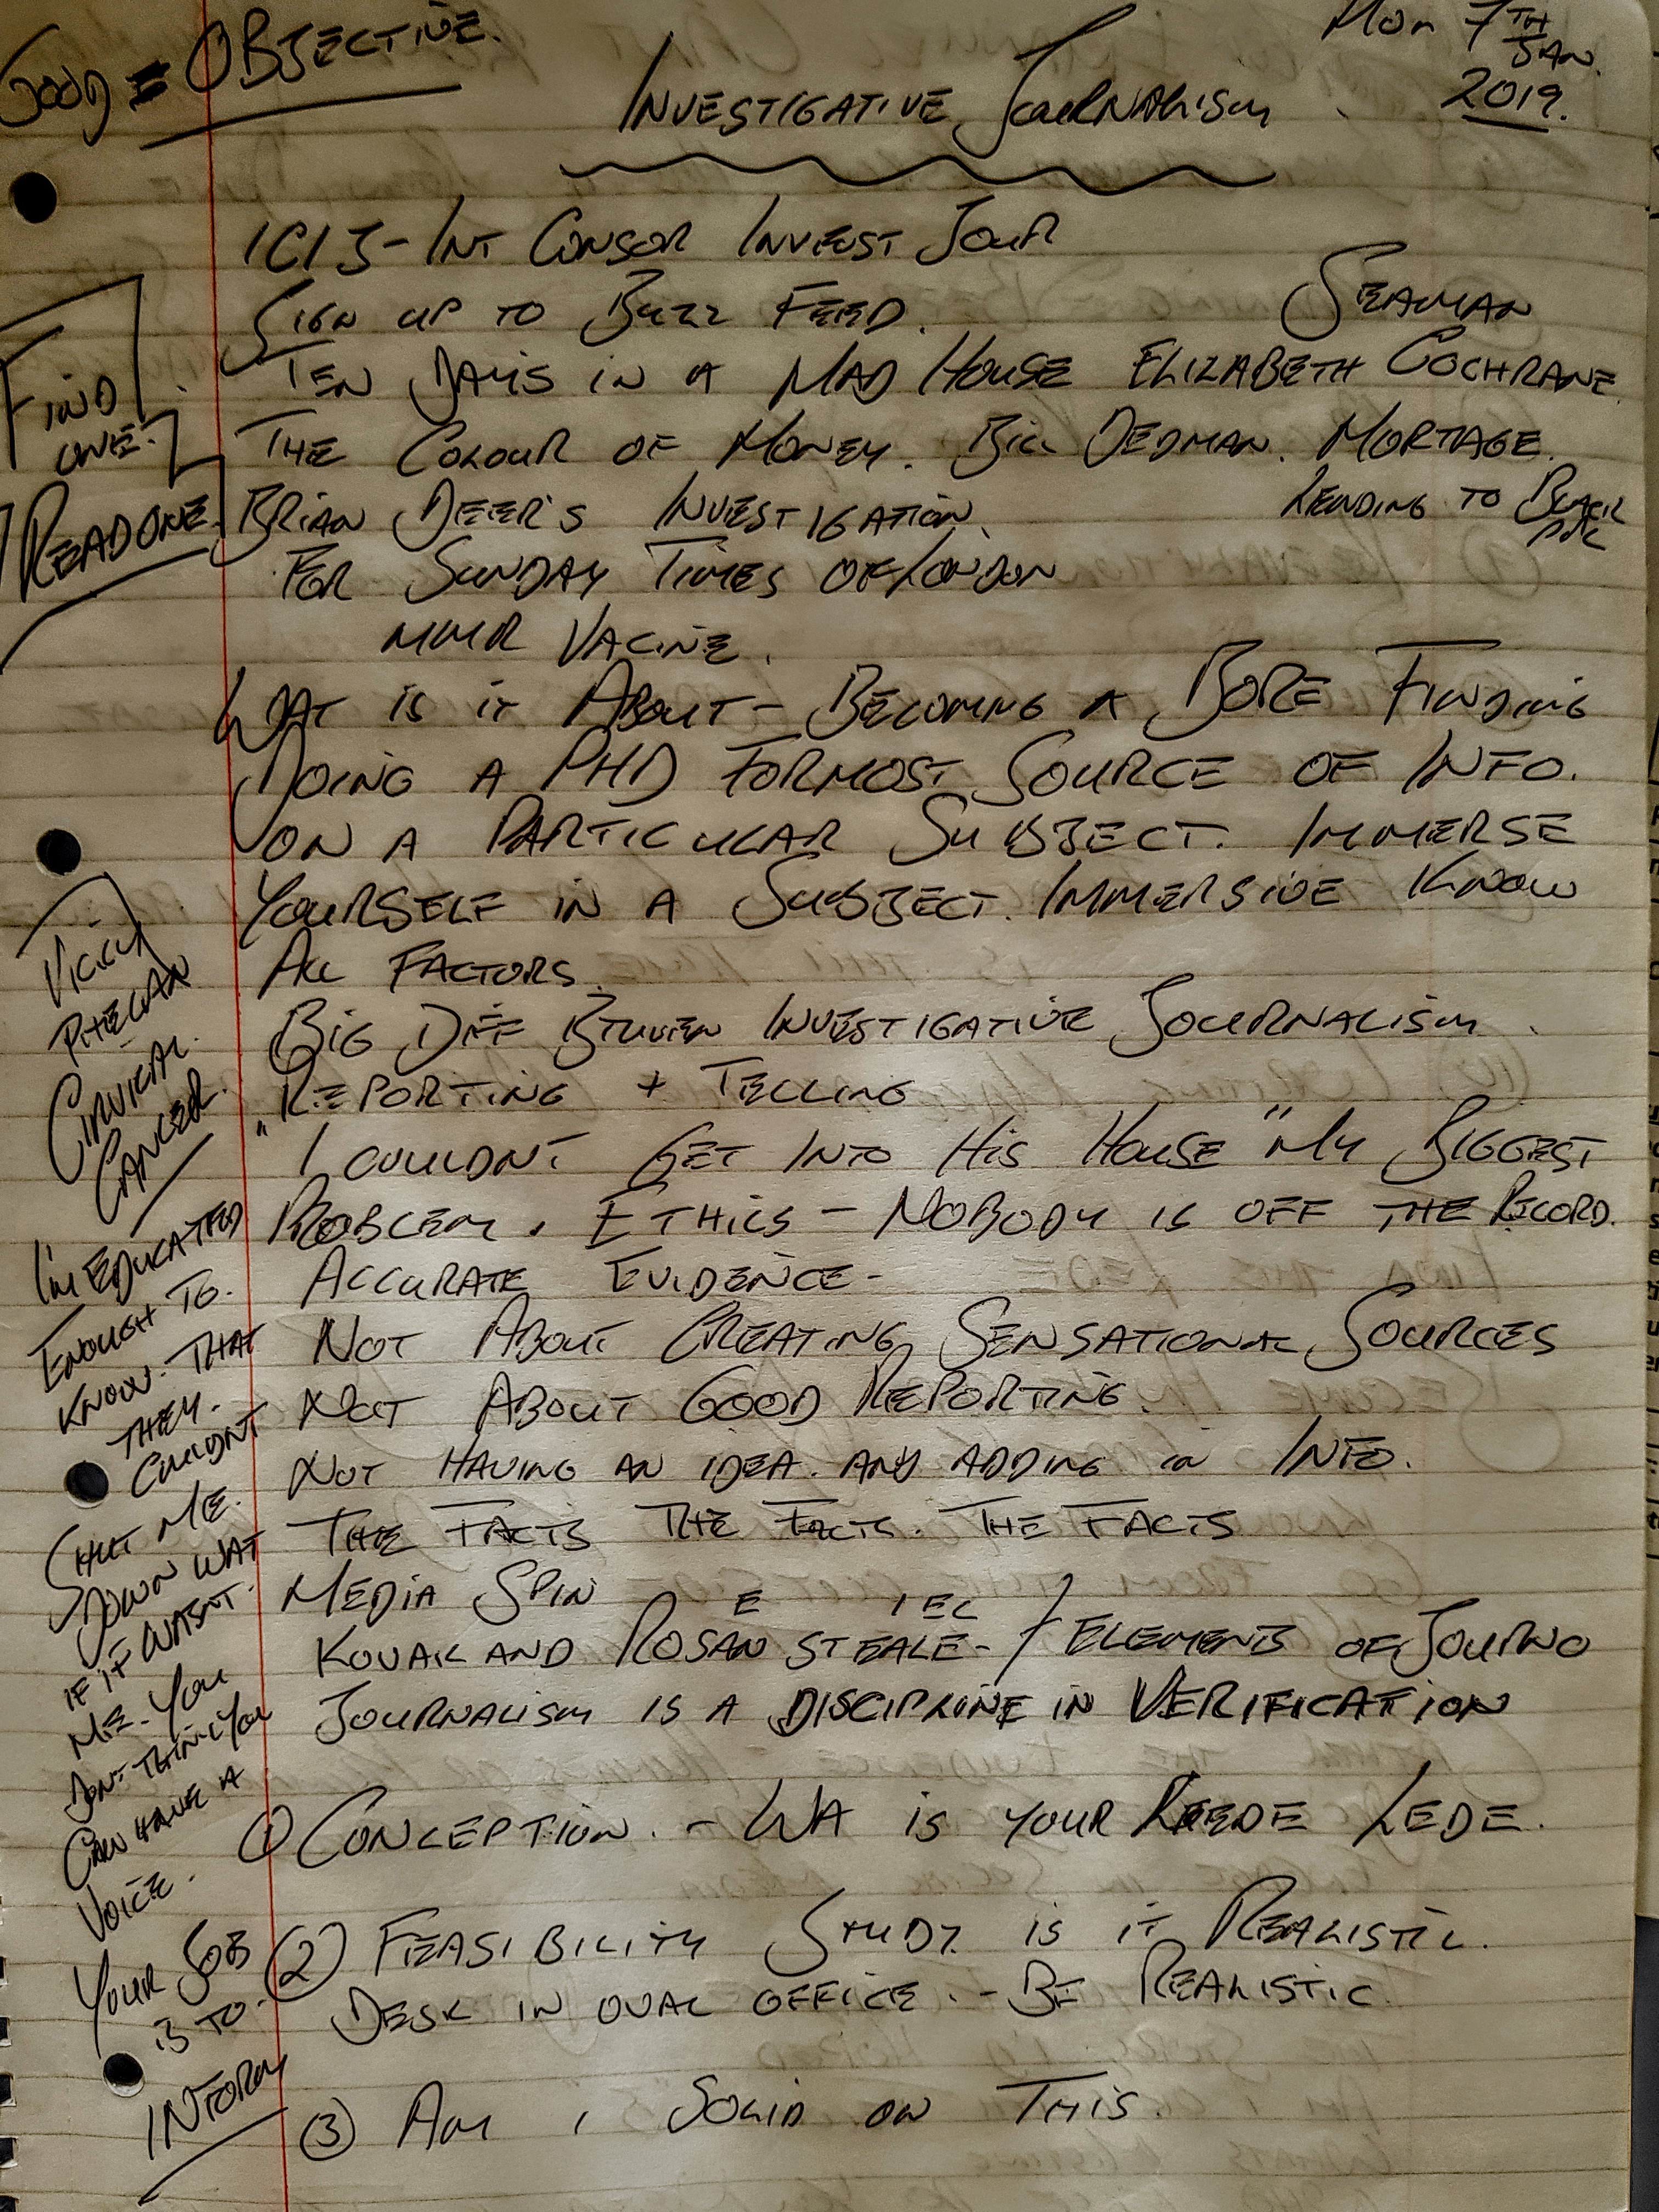 GOOD = OBJECTIVE.
MON 7TH JAN.
2019.
INVESTIGATIVE JOURNALISM
ICIJ - INT CONSOR INVEST JOUR
SIGN UP TO BUZZ FEED.
SEAMAN
TEN DAYS IN A MAD HOUSE ELIZABETH COCHRANE.
THE COLOUR OF MONEY. BILL DEDMAN. MORTAGE.
LENDING TO BLACK
BRIAN DEER'S INVESTIGATION.
FOR SUNDAY TIMES OF LONDON
MMR VACINE.
WAT IS IT ABOUT - BECOMING A BORE FINDING
DOING A PHD FORMOST SOURCE OF INFO.
ON A PARTICULAR SUBJECT. IMMERSE
YOURSELF IN A SUBJECT. IMMERSIVE KNOW
ALL FACTORS.
BIG DIFF BTWEEN INVESTIGATIVE JOURNALISM.
REPORTING + TELLING
"I COULDNT GET INTO HIS HOUSE" MY BIGGEST
PROBLEM. ETHICS - NOBODY IS OFF THE RECORD.
ACCURATE EVIDENCE -
NOT ABOUT CREATING SENSATIONAL SOURCES
NOT ABOUT GOOD REPORTING.
NOT HAVING AN IDEA. AND ADDING IN INFO.
THE FACTS THE FACTS. THE FACTS
MEDIA SPIN
E IEL
KOVAK AND ROSAN STEALE - / ELEMENTS OF JOURNO
JOURNALISM IS A DISCIPLINE IN VERIFICATION
① CONCEPTION. - WA IS YOUR LEDE.
② FEASIBILITY STUDY. IS IT REALISTIC.
DESK IN OVAL OFFICE. - BE REALISTIC.
③ AM I SOLID ON THIS.
FIND
ONE.
READ ONE.
VICKY
PHELAN
CIRVICAL.
CANCER.
I'M EDUCATED
ENOUGH TO.
KNOW. THAT
THEY.
COULDNT
SHUT ME.
DOWN WAT
IF IT WASNT.
ME. YOU
DONT THINK YOU
CAN HAVE A
VOICE.
YOUR JOB
IS TO.
INFORM